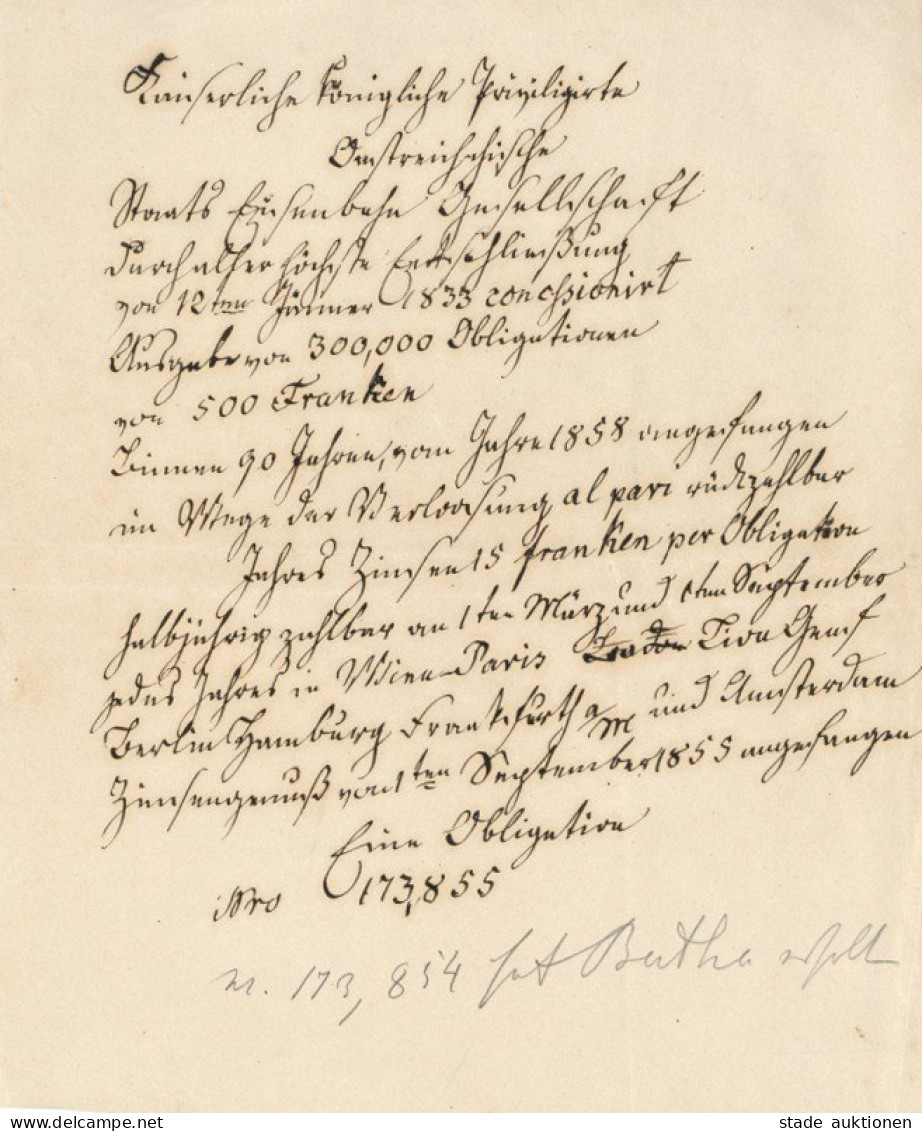 Kaiserliche Königliche Priviligirte
Oestreichische
Staats Eisenbahn Gesellschaft
durch allerhöchste Entschließung
von 12ten Jänner 1833 concessionirt
Ausgabe von 300,000 Obligationen
von 500 Franken
Binnen 90 Jahren, vom Jahre 1858 angefangen
im Wege der Verloosung al pari rückzahlbar
Jahres Zinsen 15 franken per Obligation
halbjährig zahlbar am 1ten März und 1ten September
jedes Jahres in Wien Paris London Lion Genf
Berlin Hamburg Frankfurth a/M und Amsterdam
Zinsengenuß vom 1ten September 1855 angefangen
Eine Obligation
Nro 173,855
Nr. 173,854 hat Bertha erhalt
www.delcampe.net
stade auktionen